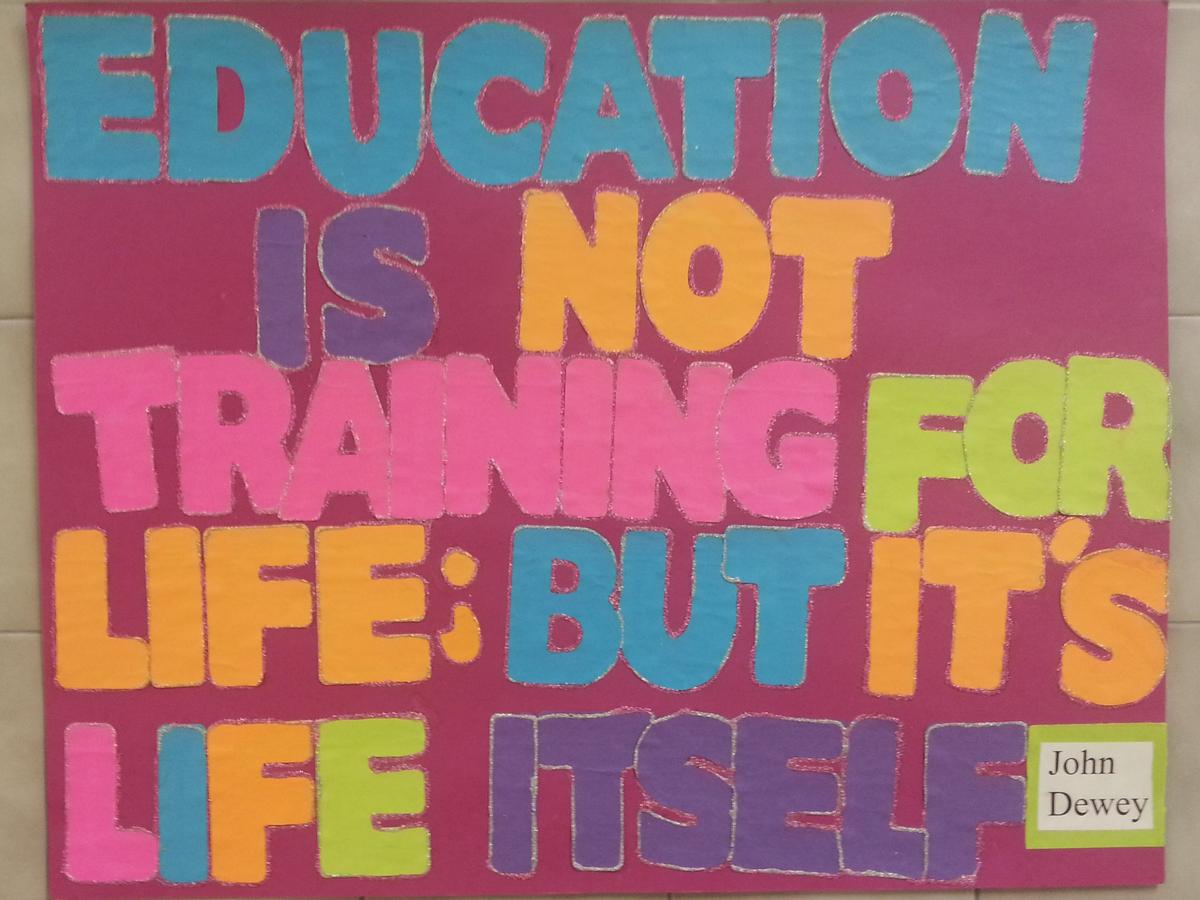 EDUCATION
IS NOT
TRAINING FOR
LIFE; BUT IT'S
LIFE ITSELF
John
Dewey